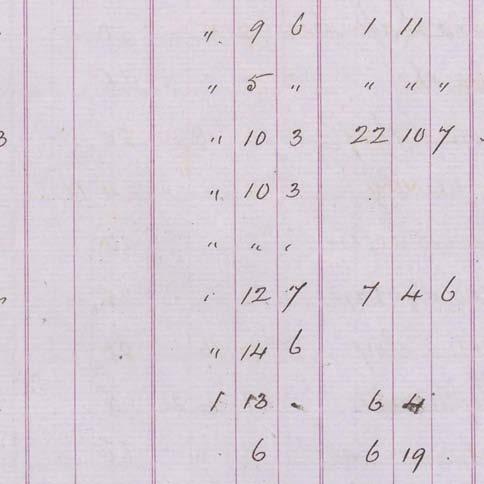 " 9 6 1 11
" 5 " " " "
3 " 10 3 22 10 7
" 10 3
" " "
" 12 7 7 4 6
" 14 6
1 13 - 6 4
6 6 19 .